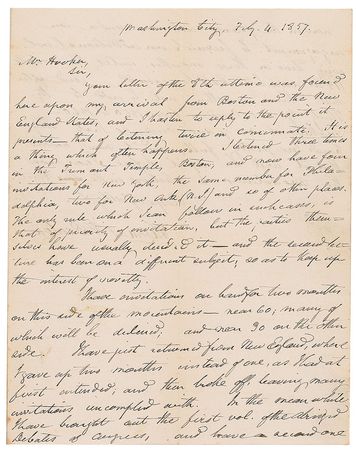 Washington City, Feby. 4. 1857.
Mr Hooker,
Sir,
Your letter of the 8th ultimo was found
here upon my arrival from Boston and the New
England States, and I hasten to reply to the point it
presents — that of lecturing twice in
a thing which often happens. I lectured three times
in the Tremont Temple, Boston, and now have four
invitations for New York, the same number for Phila-
delphia, two for New Ark (N.J.) and so of other places.
The only rule which I can follow in such cases, is
that of priority of invitation, but the parties them-
selves have usually decided it — and the second lec-
ture has been on a different subject, so as to keep up
the interest of novelty.
I have invitations on hand for two months
on this side of the mountains — near 60; many of
which will be declined, and near 30 on the other
side. I have just returned from New England, where
I gave up two months instead of one, as I had at
first intended; and then broke off, leaving many
invitations uncomplied with. In the mean while
I have brought out the first vol. of the abridged
debates of Congress, and have a second one